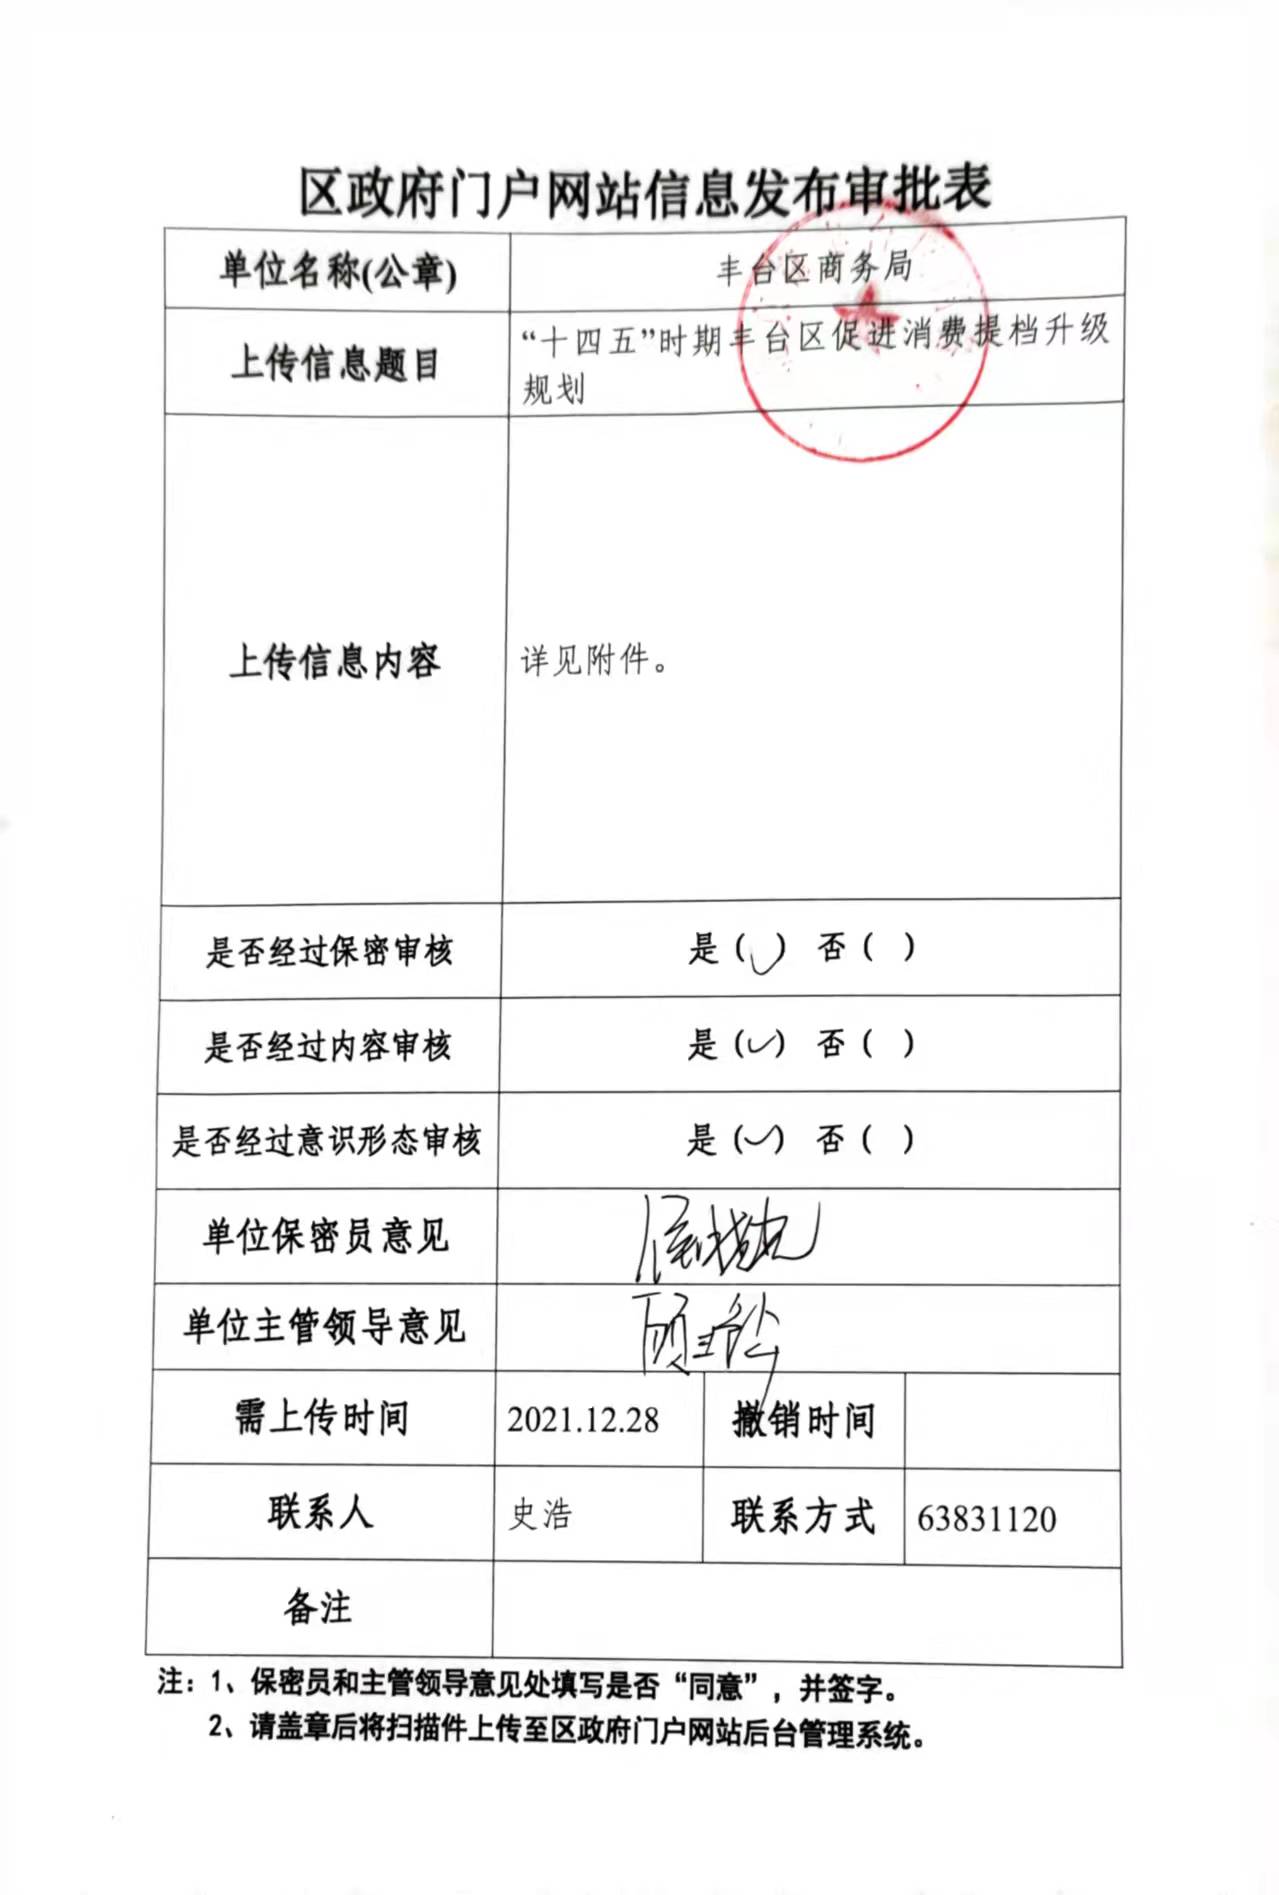 区政府门户网站信息发布审批表
单位名称(公章) 丰台区商务局
上传信息题目 “十四五”时期丰台区促进消费提档升级
规划
上传信息内容 详见附件。
是否经过保密审核 是(✓) 否( )
是否经过内容审核 是(✓) 否( )
是否经过意识形态审核 是(✓) 否( )
单位保密员意见
单位主管领导意见
需上传时间 2021.12.28 撤销时间
联系人 史浩 联系方式 63831120
备注
注：1、保密员和主管领导意见处填写是否“同意”，并签字。
2、请盖章后将扫描件上传至区政府门户网站后台管理系统。